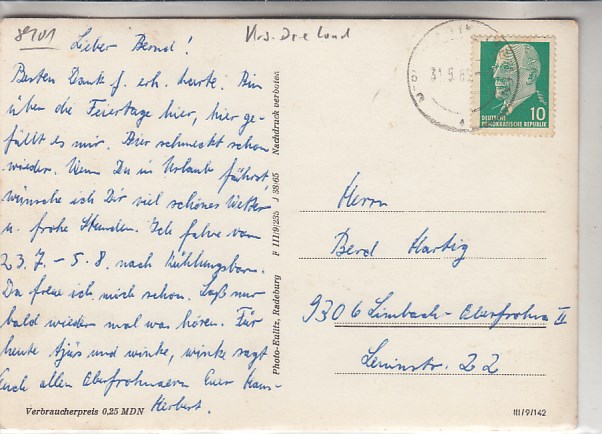 8101
Krs. Dre land
Lieber Bernd!
Besten Dank f. erh. Karte. Bin
über die Feiertage hier, hier ge-
fällt es mir. Bier schmeckt schon
wieder. Wenn Du in Urlaub fährst,
wünsche ich Dir viel schönes Wetter
u. frohe Stunden. Ich fahre vom
23.7. - 5.8. nach Kühlungsborn.
Da freue ich mich schon. Laß nur
bald wieder mal was hören. Für
heute tjüs und winke, winke sagt
Euch allen Oberfrohnaern Euer Hans-
Herbert.
Verbraucherpreis 0,25 MDN
Photo-Eulitz, Radeburg F III/9/235 J 38/65 Nachdruck verboten
31.5.6
10
DEUTSCHE
DEMOKRATISCHE REPUBLIK
Herrn
Berd Hartig
9306 Limbach-Oberfrohna II
Leninstr. 22
III/9/142